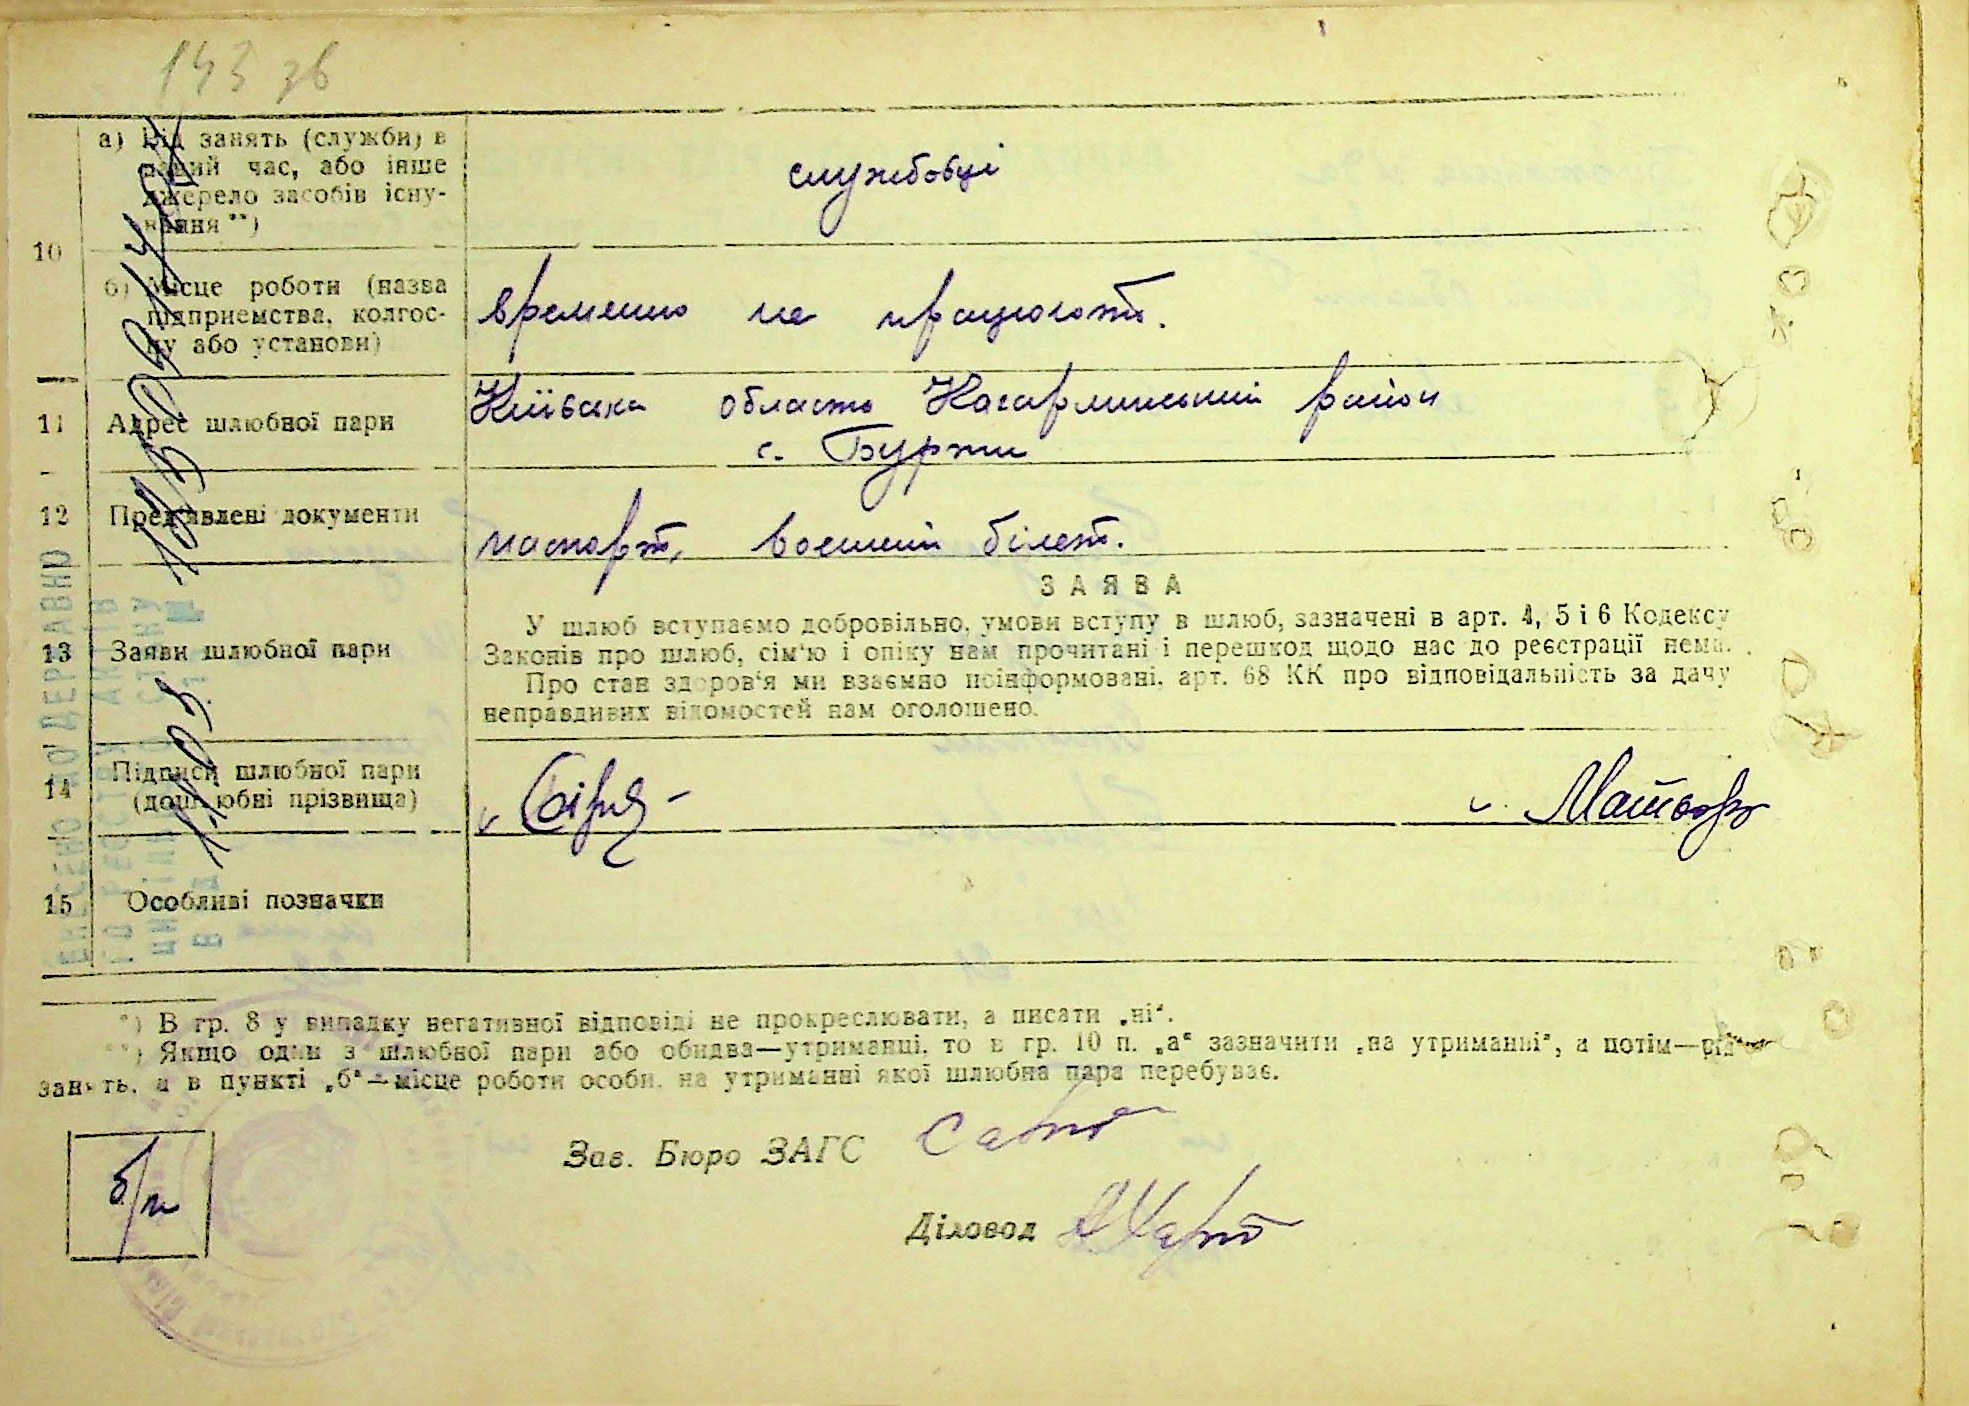 143 зв
10
а) Від занять (служби) в
даний час, або інше
джерело засобів існу-
вання **)
службовці
б) Місце роботи (назва
підприємства, колгос-
пу або установи)
временно не працюють.
11
Адрес шлюбної пари
Київська область Кагарлицький район
с. Бурти
12
Пред'явлені документи
паспорт, воєнний білет.
13
Заяви шлюбної пари
ЗАЯВА
У шлюб вступаємо добровільно, умови вступу в шлюб, зазначені в арт. 4, 5 і 6 Кодексу
Законів про шлюб, сім'ю і опіку нам прочитані і перешкод щодо нас до реєстрації нема.
Про стан здоров'я ми взаємно поінформовані, арт. 68 КК про відповідальність за дачу
неправдивих відомостей нам оголошено.
14
Підписи шлюбної пари
(дошлюбні прізвища)
15
Особливі позначки
*) В гр. 8 у випадку негативної відповіді не прокреслювати, а писати „ні“.
**) Якщо один з шлюбної пари або обидва—утриманці, то в гр. 10 п. „а“ зазначити „на утриманні“, а потім—рід
занять, а в пункті „б“—місце роботи особи, на утриманні якої шлюбна пара перебуває.
Зав. Бюро ЗАГС
Діловод
б/п